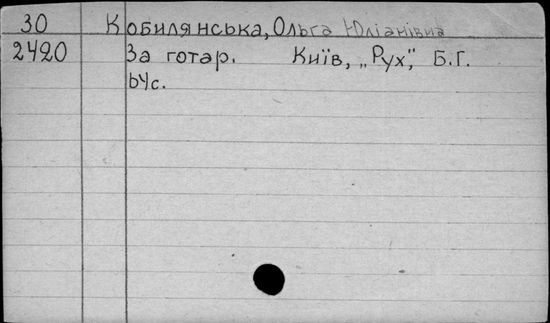 30 Кобилянська, Ольга Юліанівна
2420 За готар. Київ, „Рух”, Б.Г.
64с.